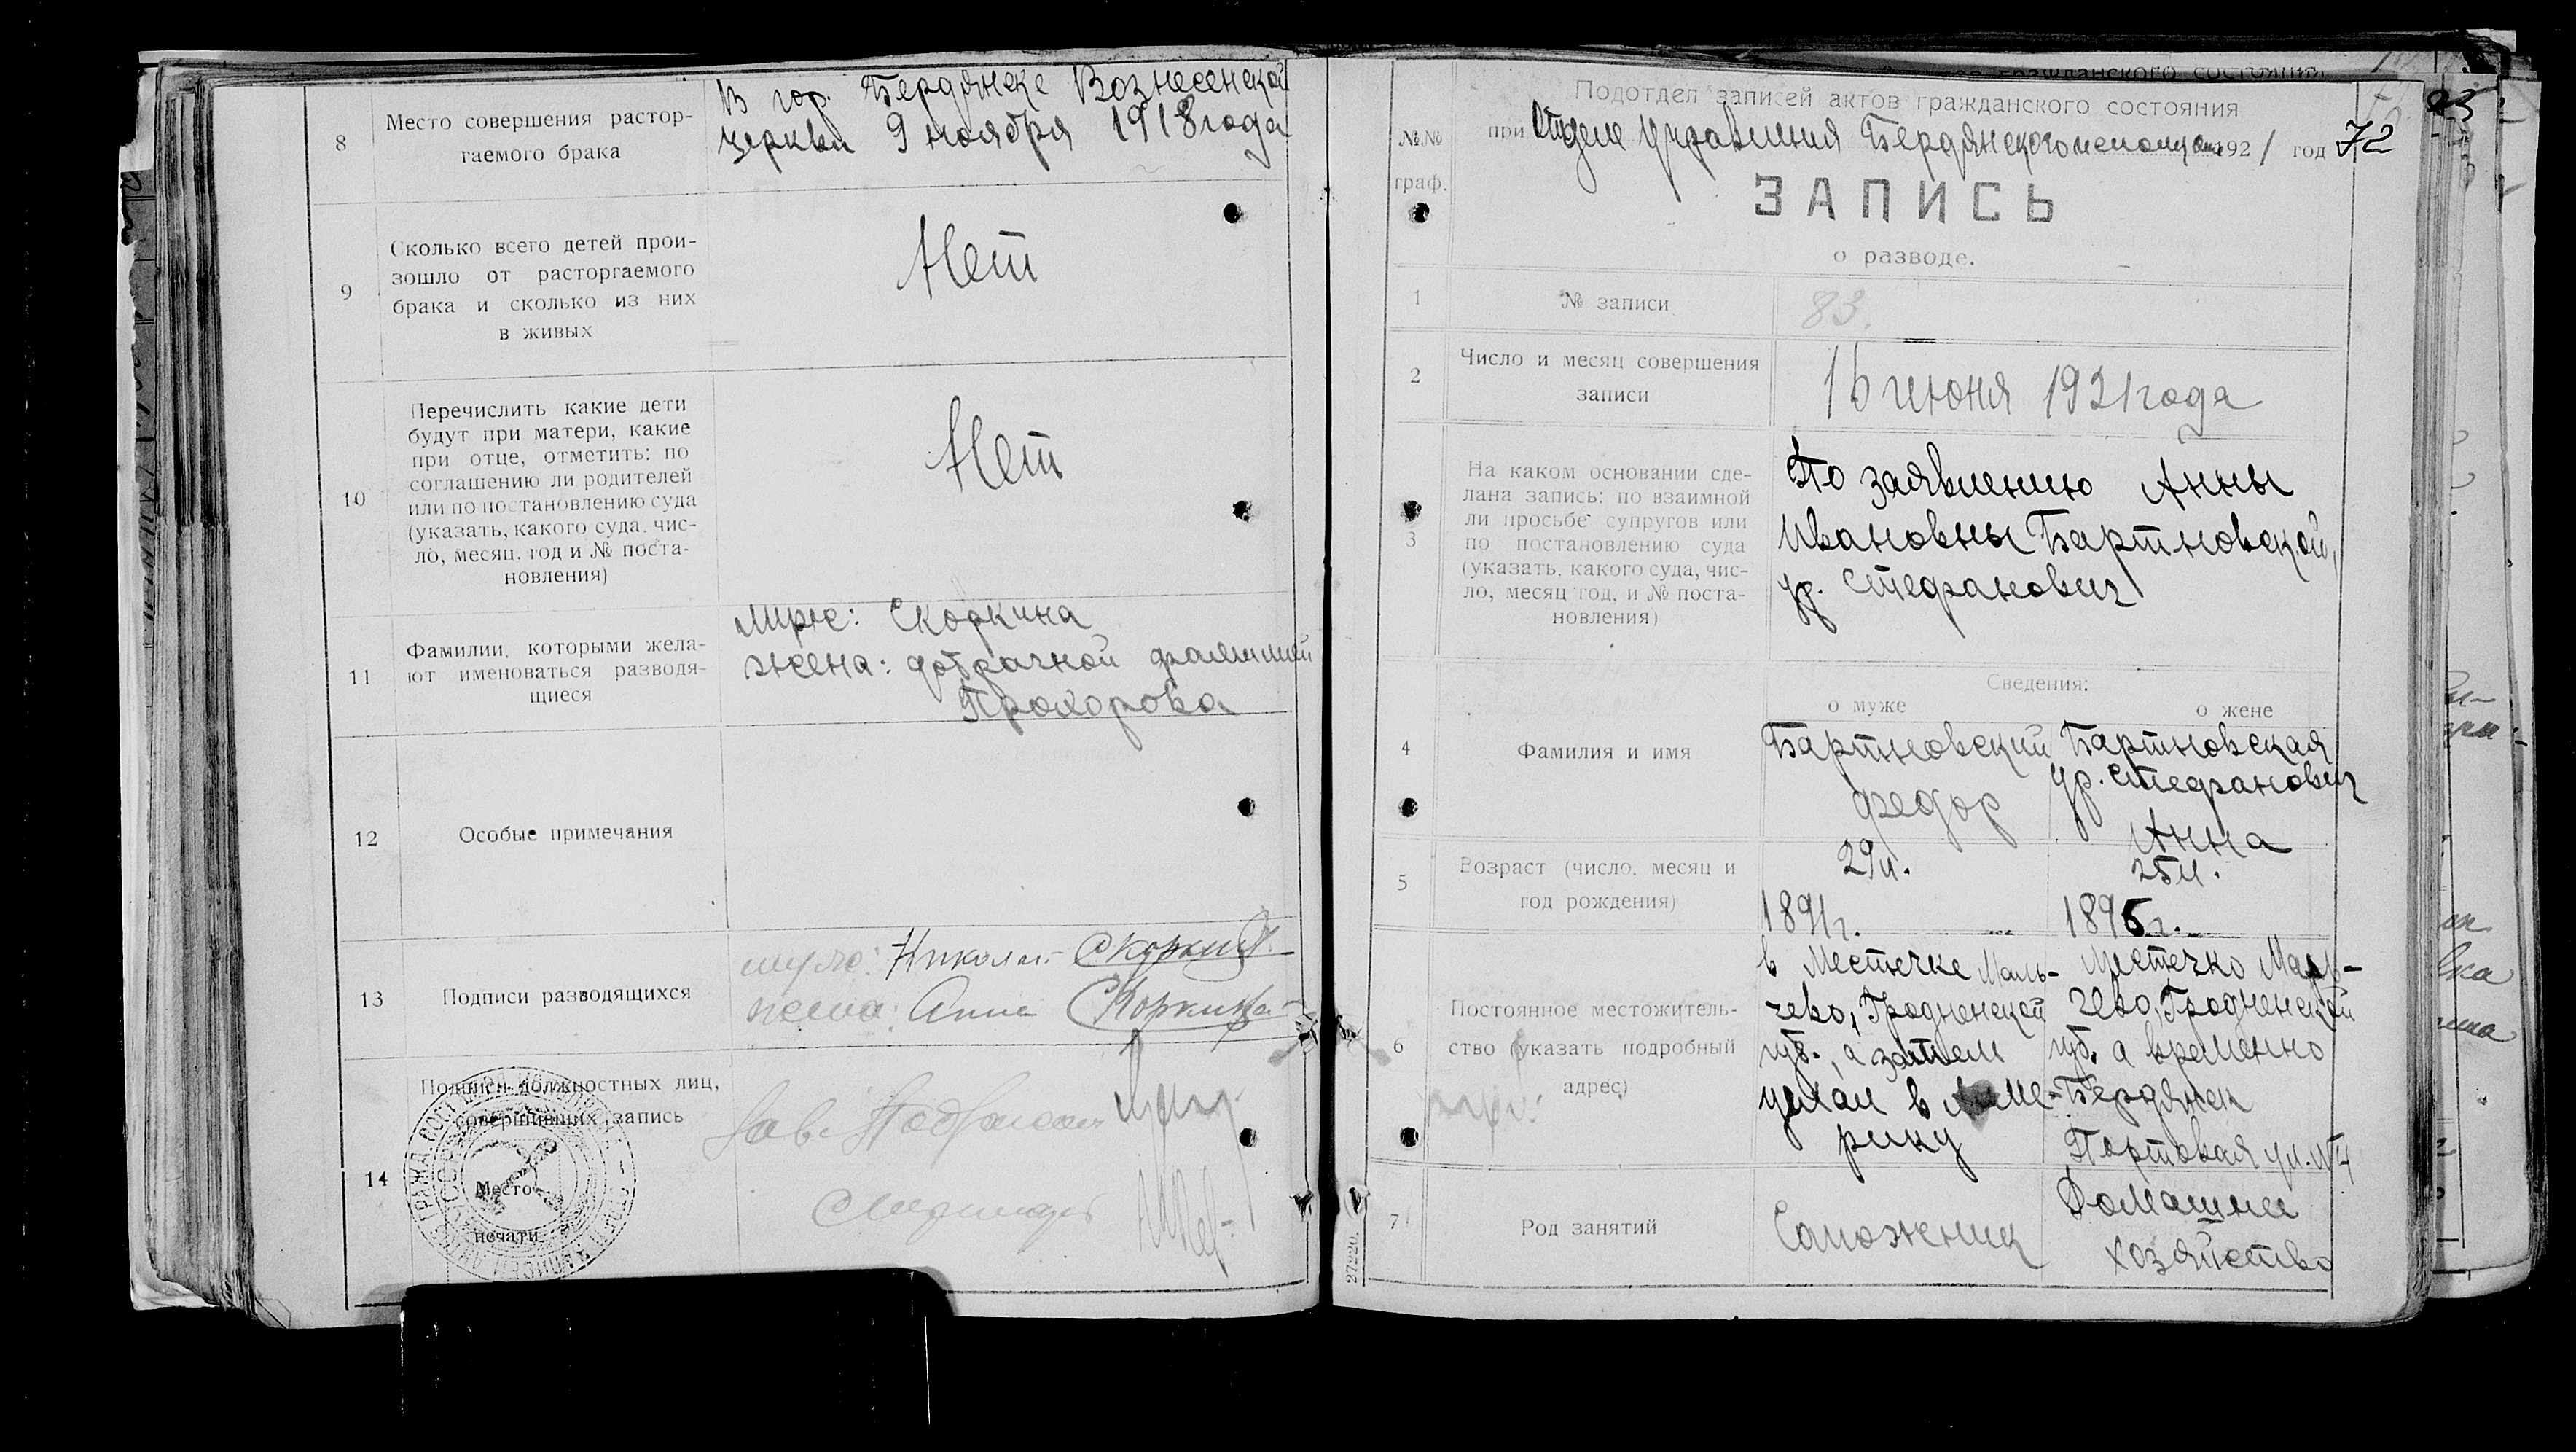 8
Место совершения растор-
гаемого брака
В гор. Бердянске Вознесенской
церкви 9 ноября 1918 года
9
Сколько всего детей прои-
зошло от расторгаемого
брака и сколько из них
в живых
Нет
10
Перечислить какие дети
будут при матери, какие
при отце, отметить: по
соглашению ли родителей
или по постановлению суда
(указать, какого суда, чис-
ло, месяц, год и № поста-
новления)
Нет
11
Фамилии, которыми жела-
ют именоваться разводя-
щиеся
Скоркина
жена: добрачной фамилией
Прохорова
12
Особые примечания
13
Подписи разводящихся
муж: Николай Скоркин
жена: Анна Скоркина
14
Подписи должностных лиц,
совершивших запись
Место
печати
Зав.
№№
граф.
Подотдел записей актов гражданского состояния
при Отделе Управления Бердянского 1921 год 72
ЗАПИСЬ
о разводе.
1
№ записи
83.
2
Число и месяц совершения
записи
16 июня 1921 года
3
На каком основании сде-
лана запись: по взаимной
ли просьбе супругов или
по постановлению суда
(указать, какого суда, чис-
ло, месяц год, и № поста-
новления)
По заявлению Анны
Ивановны Бартновской,
ур. Стефанович
Сведения:
о муже
о жене
4
Фамилия и имя
Бартновский
Федор
Бартновская
ур. Стефанович
Анна
5
Возраст (число, месяц и
год рождения)
29 л.
1891 г.
25 л.
1896 г.
6
Постоянное местожитель-
ство (указать подробный
адрес)
в Местечке Маль-
чево, Гродненской
губ., а затем
уехал в Аме-
рику
Местечко Маль-
чево, Гродненской
губ. а временно
Бердянск
Портовая ул. №
7
Род занятий
Сапожник
Домашнее
хозяйство
27220.